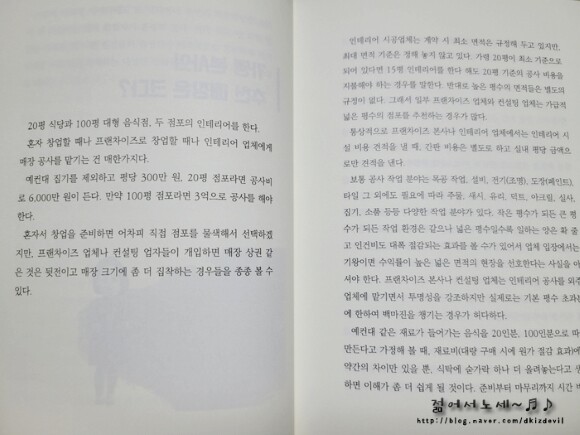 20평 식당과 100평 대형 음식점, 두 점포의 인테리어를 한다.
혼자 창업할 때나 프랜차이즈로 창업할 때나 인테리어 업체에게
매장 공사를 맡기는 건 매한가지다.
예컨대 집기를 제외하고 평당 300만 원, 20평 점포라면 공사비
로 6,000만 원이 든다. 만약 100평 점포라면 3억으로 공사를 해야
한다.
혼자서 창업을 준비하면 어차피 직접 점포를 물색해서 선택하겠
지만, 프랜차이즈 업체나 컨설팅 업자들이 개입하면 매장 상권 같
은 것은 뒷전이고 매장 크기에 좀 더 집착하는 경우들을 종종 볼 수
있다.
인테리어 시공업체는 계약 시 최소 면적은 규정해 두고 있지만,
최대 면적 기준은 정해 놓지 않고 있다. 가령 20평이 최소 기준으로
되어 있다면 15평 인테리어를 한다 해도 20평 기준의 공사 비용을
지불해야 하는 경우를 말한다. 반대로 높은 평수의 면적들은 별도의
규정이 없다. 그래서 일부 프랜차이즈 업체와 컨설팅 업체는 가급적
넓은 평수의 점포를 추천하는 경우가 많다.
통상적으로 프랜차이즈 본사나 인테리어 업체에서는 인테리어 시
설 비용 견적을 낼 때, 간판 비용은 별도로 하고 실내 평당 금액으
로만 견적을 낸다.
보통 공사 작업 분야는 목공 작업, 설비, 전기(조명), 도장(페인트),
타일 그 외에도 필요에 따라 주물, 새시, 유리, 덕트, 아크릴, 실사,
집기, 소품 등등 다양한 작업 분야가 있다. 작은 평수가 되든 큰 평
수가 되든 작업 환경은 같으나 넓은 평수일수록 일하는 양은 확 줄
고 인건비도 대폭 절감되는 효과를 볼 수가 있어서 업체 입장에서는
기왕이면 수익률이 높은 넓은 면적의 현장을 선호한다는 사실을 아
셔야 한다. 프랜차이즈 본사나 컨설팅 업체는 인테리어 공사를 외주
업체에 맡기면서 투명성을 강조하지만 실제로는 기본 평수 초과분
에 한하여 백마진을 챙기는 경우가 허다하다.
예컨대 같은 재료가 들어가는 음식을 20인분, 100인분으로
만든다고 가정해 볼 때, 재료비(대량 구매 시에 원가 절감 효과)에
약간의 차이만 있을 뿐, 식탁에 숟가락 하나 더 올려놓는다고
하면 이해가 좀 더 쉽게 될 것이다. 준비부터 마무리까지 시간
젊어서노세~♬♪
http://blog.naver.com/dkizdevil